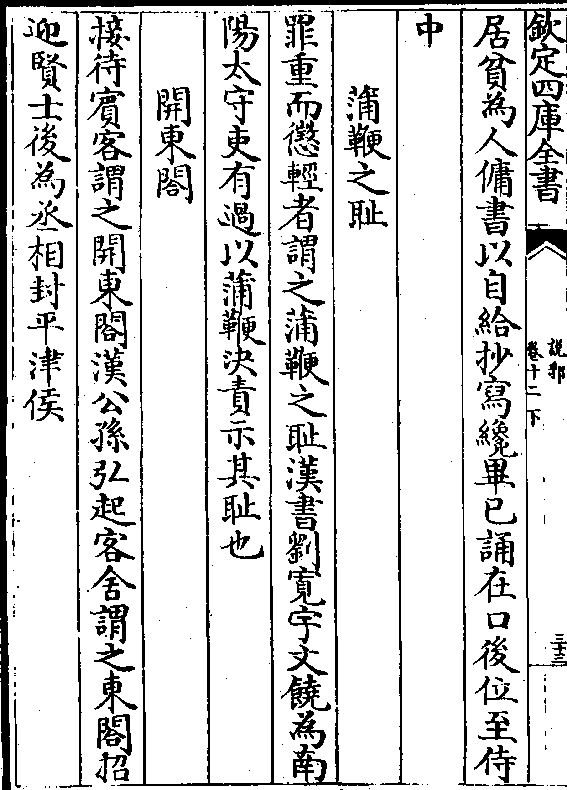 欽定四庫全書
說郛
卷十二下
三十三
居貧為人傭書以自給抄寫纔畢已誦在口後位至侍
中
蒲鞭之耻
罪重而懲輕者謂之蒲鞭之耻漢書劉寛字文饒為南
陽太守吏有過以蒲鞭決責示其耻也
開東閣
接待賓客謂之開東閣漢公孫弘起客舍謂之東閣招
迎賢士後為丞相封平津侯